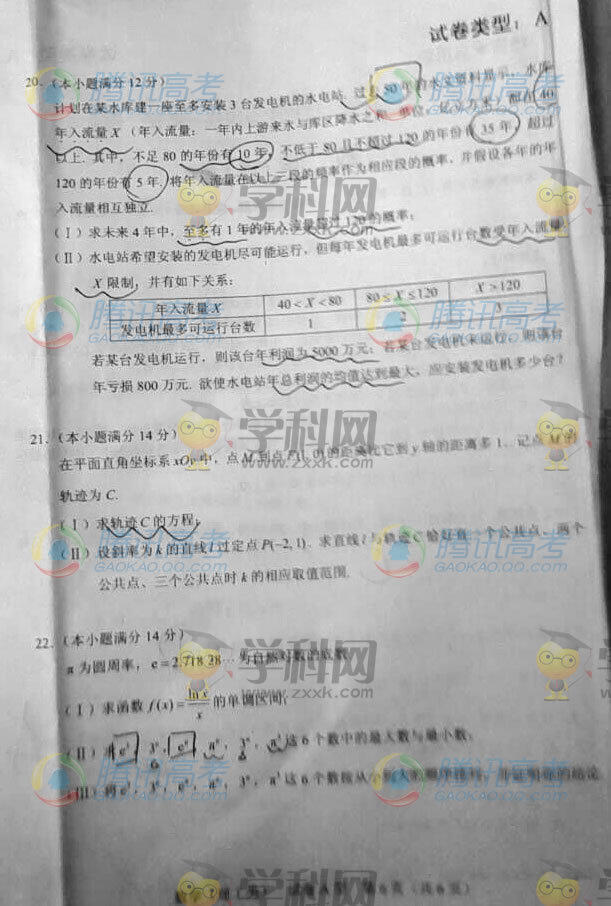 试卷类型：A
20.（本小题满分 12 分）
计划在某水库建一座至多安装 3 台发电机的水电站. 过去 50 年的水文资料显示，水库
年入流量 X（年入流量：一年内上游来水与库区降水之和. 单位：亿立方米）都在 40
以上. 其中，不足 80 的年份有 10 年，不低于 80 且不超过 120 的年份有 35 年，超过
120 的年份有 5 年. 将年入流量在以上三段的频率作为相应段的概率，并假设各年的年
入流量相互独立.
（Ⅰ）求未来 4 年中，至多有 1 年的年入流量超过 120 的概率；
（Ⅱ）水电站希望安装的发电机尽可能运行，但每年发电机最多可运行台数受年入流量
X 限制，并有如下关系：
年入流量 X 40<X<80 80≤X≤120 X>120
发电机最多可运行台数 1 2 3
若某台发电机运行，则该台年利润为 5000 万元；若某台发电机未运行，则该台
年亏损 800 万元. 欲使水电站年总利润的均值达到最大，应安装发电机多少台？
21.（本小题满分 14 分）
在平面直角坐标系 xOy 中，点 M 到点 F(1, 0) 的距离比它到 y 轴的距离多 1. 记点 M 的
轨迹为 C.
（Ⅰ）求轨迹 C 的方程；
（Ⅱ）设斜率为 k 的直线 l 过定点 P(−2, 1). 求直线 l 与轨迹 C 恰好有一个公共点、两个
公共点、三个公共点时 k 的相应取值范围.
22.（本小题满分 14 分）
π 为圆周率，e = 2.718 28… 为自然对数的底数.
（Ⅰ）求函数 f(x) = ln x / x 的单调区间；
（Ⅱ）求 e³，3ᵉ，e^π，π^e，3^π，π³ 这 6 个数中的最大数与最小数；
（Ⅲ）将 e³，3ᵉ，e^π，π^e，3^π，π³ 这 6 个数按从小到大的顺序排列，并证明你的结论.
试卷A型 第 6 页（共 6 页）
腾讯高考
GAOKAO.QQ.COM
学科网
www.zxxk.com